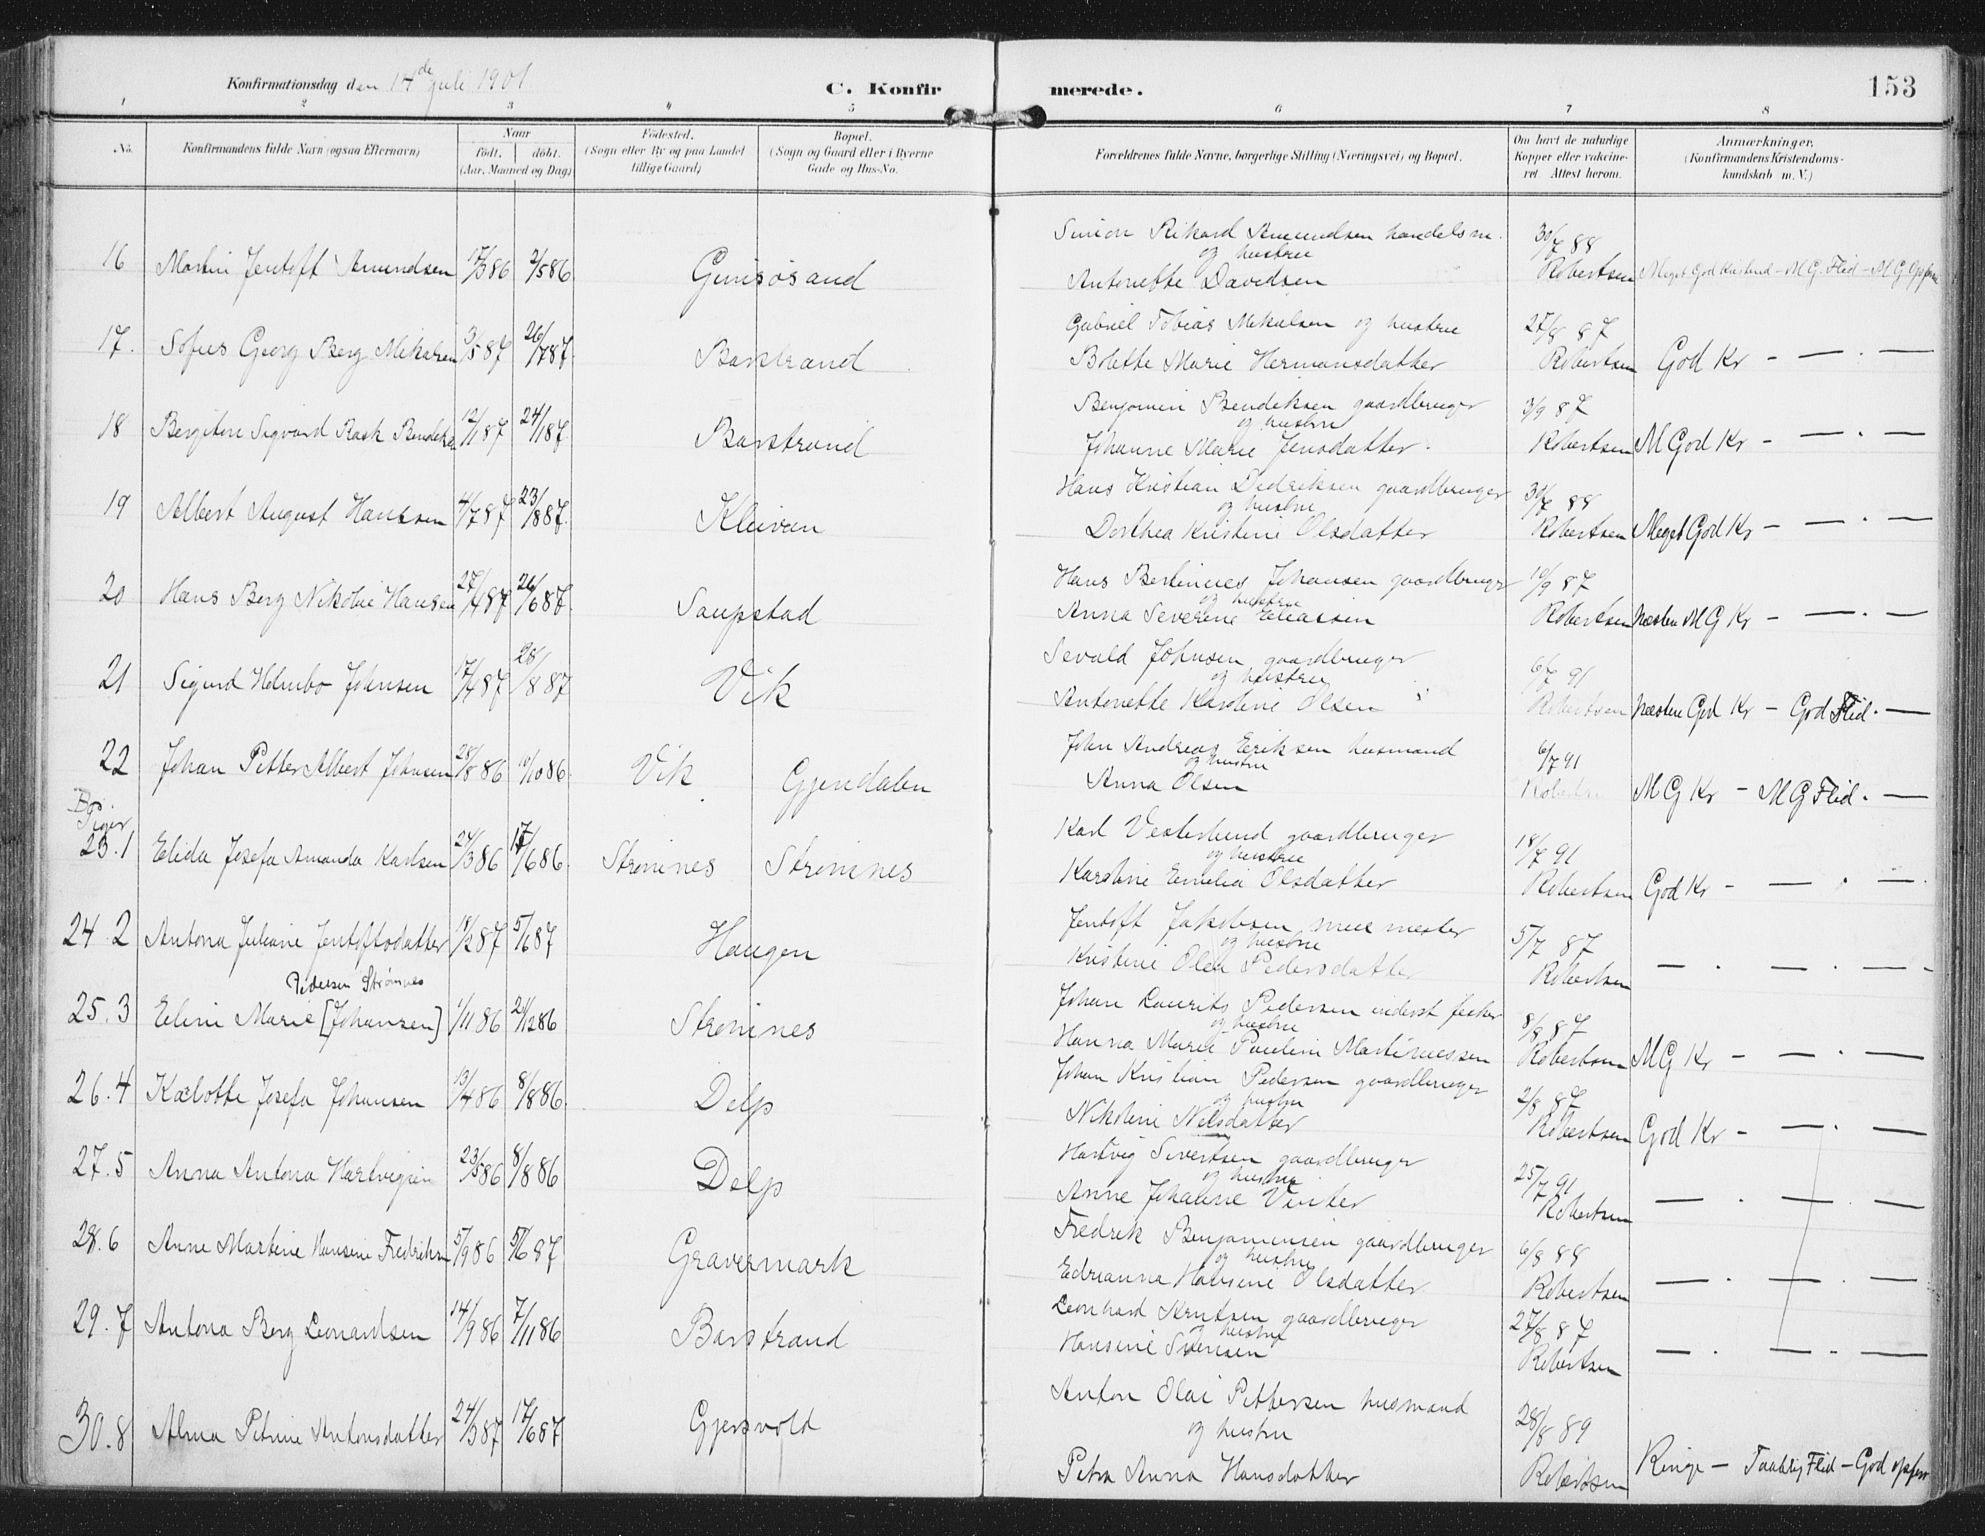 Konfirmationsdag den 14de Juli 1901
C. Konfirmerede.
153
1 2 3 4 5 6 7 8
No. Konfirmandens fulde Navn (ogsaa Efternavn) Naar født. døbt. (Aar, Maaned og Dag) Fødested. (Sogn eller By og paa Landet tillige Gaard) Bopæl. (Sogn og Gaard eller i Byerne Gade og Hus-No. Forældrenes fulde Navne, borgerlige Stilling (Næringsvei) og Bopæl. Om havt de naturlige Kopper eller vakcineret. Attest herom. Anmærkninger. (Konfirmandens Kristendomskundskab m. V.)
16 Martin Jentoft Amundsen 17/3 86 2/5 86 Gimsøsand Simon Rikard Amundsen handelsm. og hustru Antonette Davidsen 30/7 88 Robertsen Meget God Kristend - MG. Flid - MG Opførs
17. Sofus Georg Berg Mikalsen 3/5 87 26/7 87 Barstrand Gabriel Tobias Mikalsen og hustru Bolette Marie Hermansdatter 27/8 87 Robertsen God Kr - — . —
18 Bergiton Sigvard Rask Bendiks 12/1 87 24/1 87 Barstrand Benjamin Bendiksen gaardbruger og hustru Johanne Marie Jensdatter. 3/9 87 Robertsen M God Kr - — . —
19 Albert August Hanssen 4/7 87 23/8 87. Kleivan Hans Kristian Didriksen gaardbruger og hustru Dorthea Kristine Olsdatter 30/7 88 Robertsen Meget God Kr - — . —
20 Hans Berg Nikolai Hansen 27/4 87 26/6 87 Saupstad Hans Bertinues Johansen gaardbruger og hustru Anna Severine Eliassen 10/9 87 Robertsen Næsten MG Kr - — . —
21 Sigurd Holmbo Johnsen 17/4 87 28/8 87 Vik Sevald Johnsen gaardbruger og hustru Antonette Karoline Olsen 6/7 91 Robertsen Næsten God Kr - God Flid. —
22 Johan Petter Albert Johnsen 28/8 86 10/10 86 Vik Gjendalen John Andreas Eriksen husmand og hustru Anna Olsen 6/7 91 Robertsen MG Kr - MG Flid. —
Piger
23.1 Elida Josefa Amanda Karlsen 24/3 86 17/6 86. Strømnes Strømnes Karl Vesterlund gaardbruger og hustru Karoline Emelia Olsdatter 18/7 91 Robertsen God Kr - — . —
24.2 Antona Juliane Jentoftsdatter 18/2 87 5/6 87 Haugen Jentoft Jakobsen murmester og hustru Kristine Olea Pedersdatter 5/7 87 Robertsen — . — . —
Pedersen Strømnes
25.3 Eline Marie [Johansen] 1/11 86 21/12 86 Strømnes Johan Laurits Pedersen inderst fisker og hustru Hanna Marie Pauline Martinussen 8/8 87 Robertsen MG Kr - — . —
26.4 Kalotte Josefa Johansen 13/4 86 8/8 86. Delp Johan Kristian Pedersen gaardbruger og hustru Nikoline Nilsdatter 2/8 87 Robertsen God Kr - — . —
27.5 Anna Antona Hartvigsen 23/5 86 8/8 86 Delp Hartvig Sivertsen gaardbruger og hustru Anne Johanne Vinter 25/7 91 Robertsen — . — . —
28.6 Anne Martine Hansine Fredriksen 5/9 86 5/6 87 Gravermark Fredrik Benjaminsen gaardbruger og hustru Edrianna Hansine Olsdatter 6/8 88 Robertsen — . — . —
29.7 Antona Berg Leonardsen 14/9 86 7/11 86 Barstrand Leonhard Knutsen gaardbruger og hustru Hansine Svensen 27/8 87 Robertsen — . — . —
30.8 Alma Petrine Antonsdatter 24/3 87 17/6 87 Gjersvold Anton Olai Pettersen husmand og hustru Petra Anna Hansdatter 28/8 89 Robertsen Ringe - Taalelig Flid - God opførs